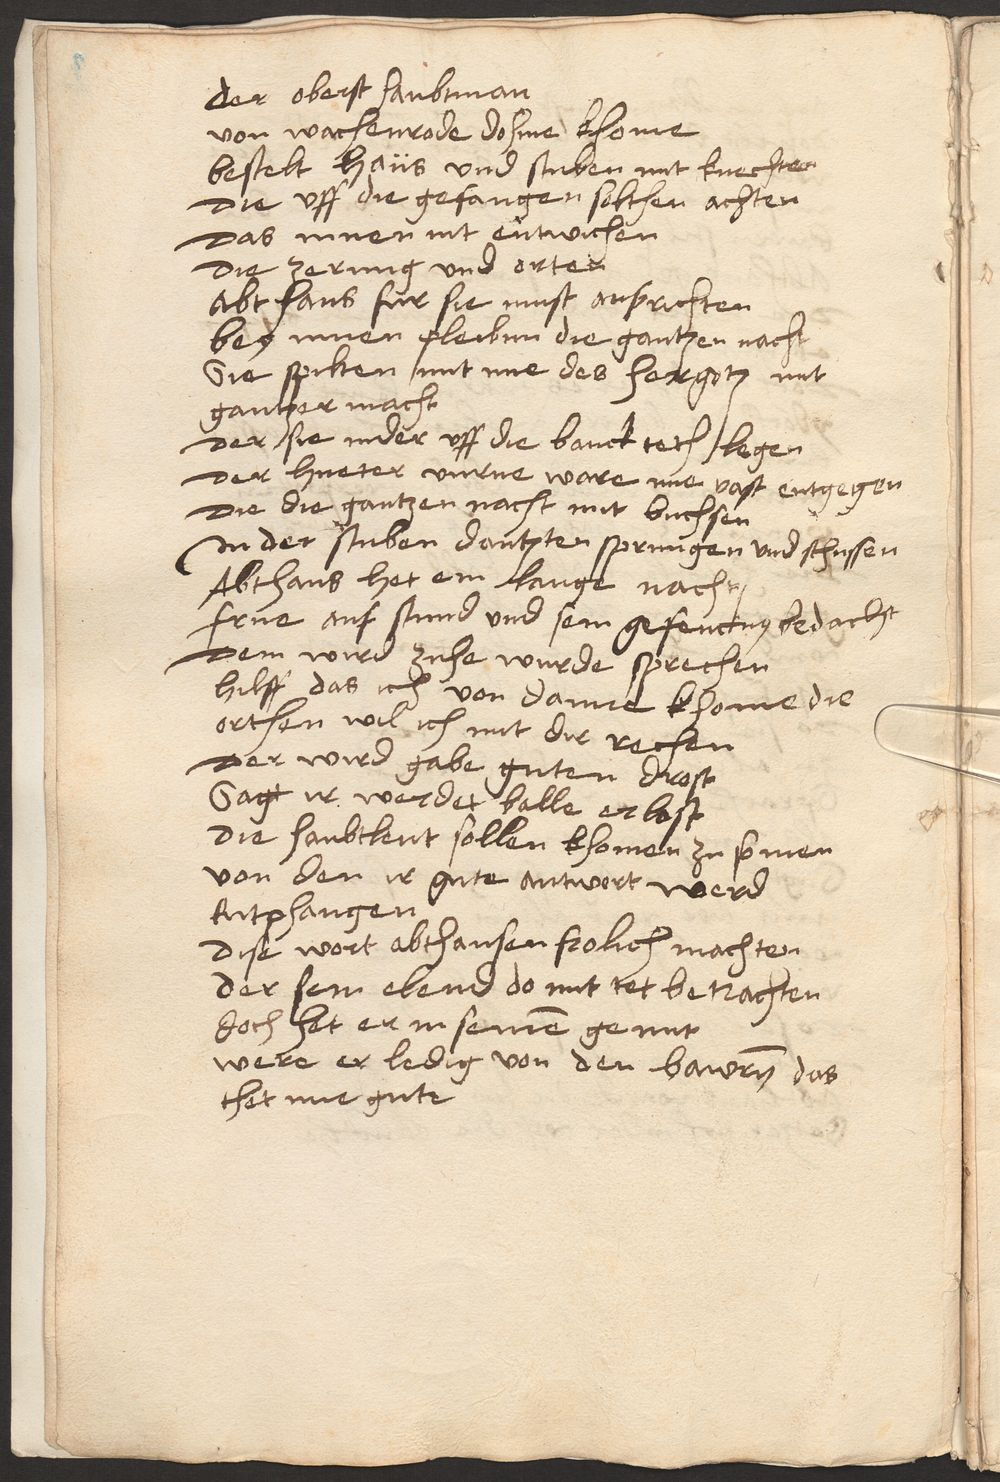 der oberst haubtman
von wachenrode dohine khome
bestelt haüs und stuben mit knechten
die uff die gefangen solthen achten
das innen nit entwichen
die zerung und orten
abt hans fur sie must ausrichten
bey innen pleibnn die gantzen nacht
Sie spilten mit ime des hergotz mit
gantzer macht
der sie nider uff die banck teth legen
der hueter vnrue ware ime vast entgegen
die die gantzen nacht mit buchsen
In der stuben dantzten sprungen und schussen
Abthans het ein lange nacht
frue auf stund und sein gefencnus bedacht
dem wird zuhe wurde sprechen
hilff das ich von danne khome die
orthen wil ich mit dir rechen
der wird gabe guten drost
Sagt ir werdet balle erlost
die haubtleut sollen khomen zu samen
von den ir gute antwort werd
Entphangen
dise wort abthansen frolich machten
der sein elend do mit tet betrachten
doch het er in seinē gemut
were er ledig von den bawrn das
thet ime gute